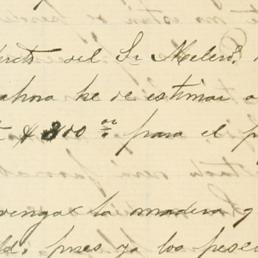 del Sr Melero.
ahora he de estimar a
$ 300 00 para el p
venga la madera y
pues ya los pesc